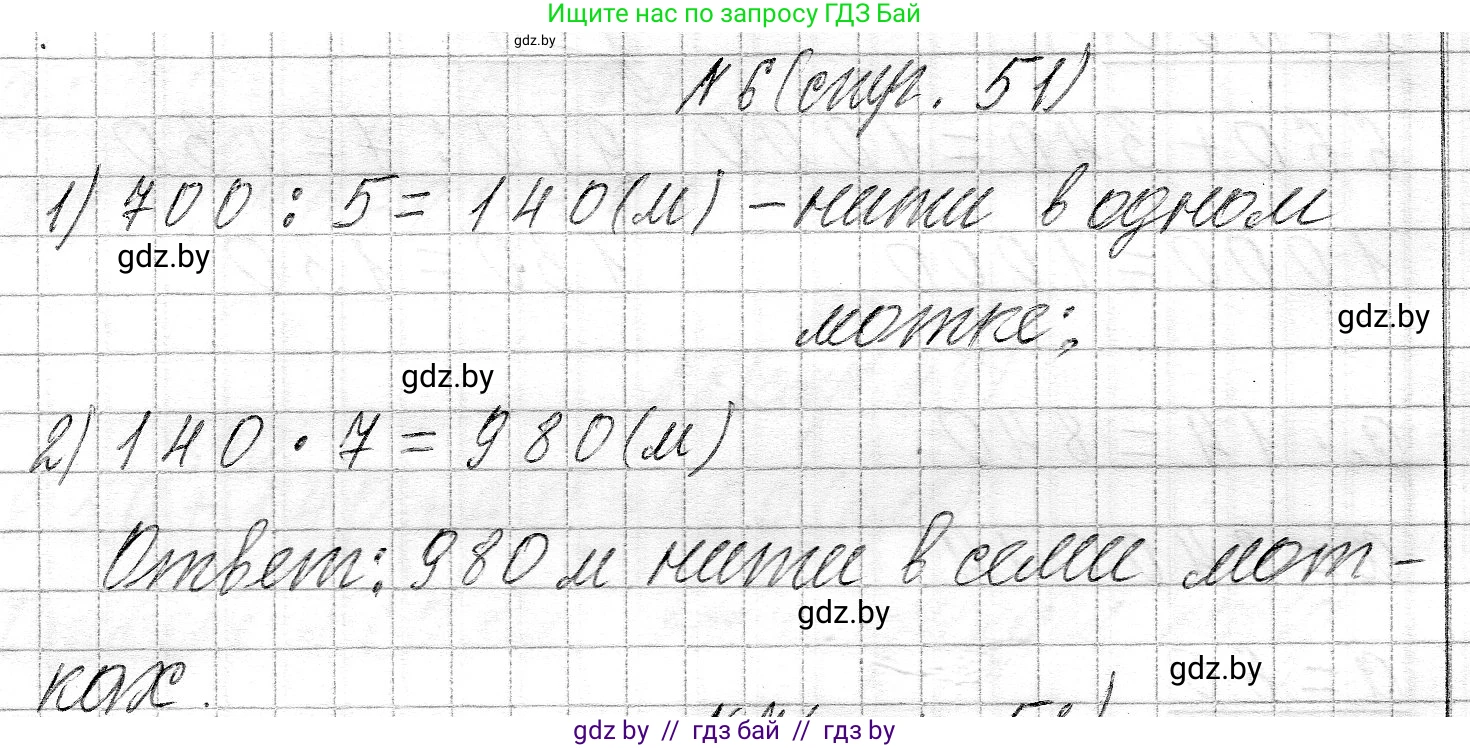 Ищите нас по запросу ГДЗ Бай
gdz.by
№ 6 (стр. 51)
1) 700 : 5 = 140 (м) – нити в одном
gdz.by
мотке;
gdz.by
gdz.by
2) 140 · 7 = 980 (м)
Ответ: 980 м нити в семи мот-
gdz.by
ках.
gdz.by
gdz by // гдз бай // гдз by